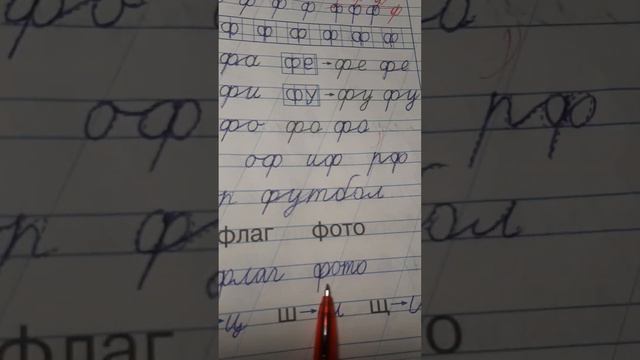 ф ф ф ф ф ф ф
ф ф ф ф ф ф
фа фе → фе фе
фи фу → фу фу
фо фо фо
оф иф рф
футбол
флаг фото
флаг фото
Ш → Щ →